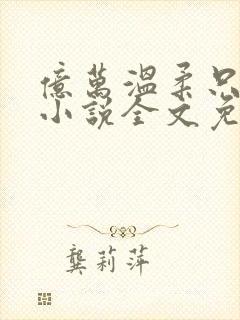 億萬溫柔只
小說全文免
龔莉萍